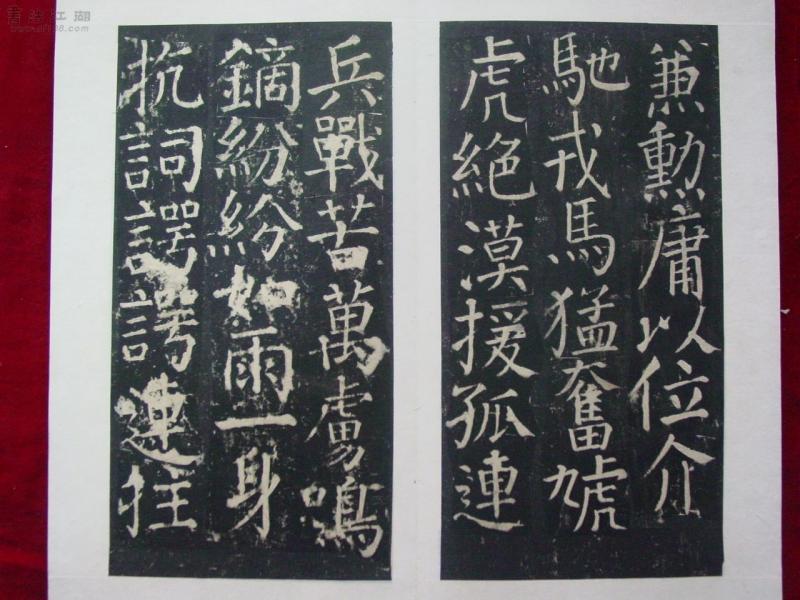 兼勳庸以位介
馳戎馬猛奮虓
虎絕漠援孤連
兵戰苦萬虜鳴
鏑紛紛如雨一身
抗詞諤諤連拄
書法江湖